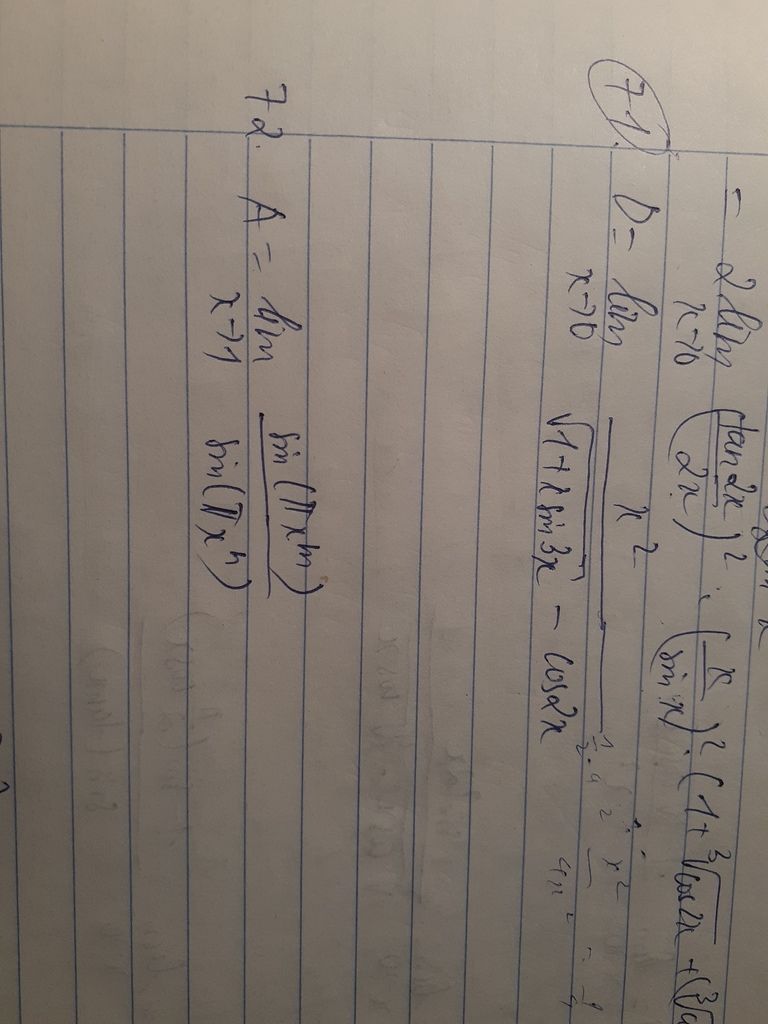 = 2 lim x→0 (tan 2x / 2x)² · (x / sin x)² · (1 + ∛cos2x + (∛
71. D = lim x→0 x² / (√(1 + x sin 3x) − cos2x)
72. A = lim x→1 sin(πxᵐ) / sin(πxⁿ)